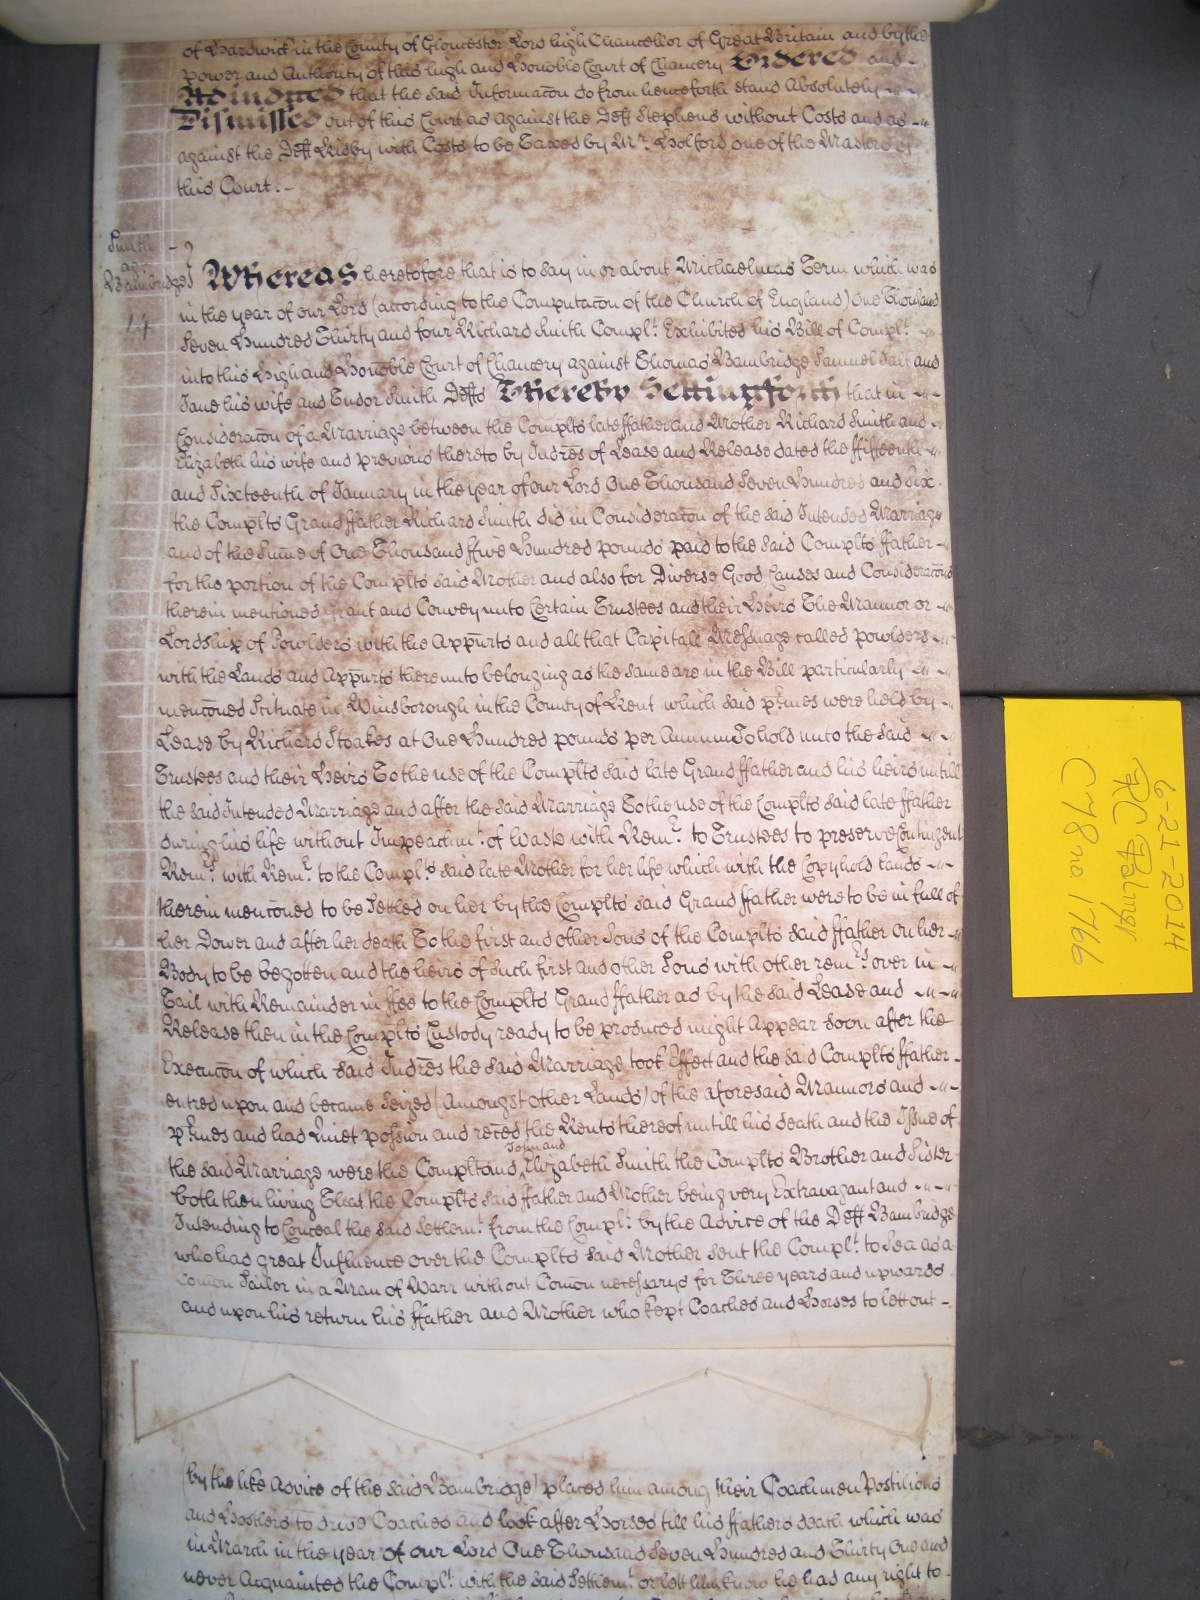 of Hardwick in the County of Gloucester Lord high Chancellor of Great Britain and by the
power and Authority of this high and Honoble Court of Chancery Ordered and
Adjudged that the said Informacon do from henceforth stand Absolutely
Dismissed out of this Court as against the Deft Stephens without Costs and as
against the Deft Risby with Costs to be Taxed by Mr. Holford one of the Masters of
this Court.
Smith
agt
Bambridge
Whereas heretofore that is to say in or about Michaelmas Term which was
in the year of our Lord (according to the Computacon of the Church of England) One Thousand
Seven Hundred Thirty and four Richard Smith Complt. Exhibited his Bill of Complt.
into this High and Honoble Court of Chancery against Thomas Bambridge Samuel Tart and
Jane his wife and Tudor Smith Defts Thereby Settingforth that in
Consideracon of a Marriage between the Complts late ffather and Mother Richard Smith and
Elizabeth his wife and previous thereto by Indres of Lease and Release dated the ffifteenth
and Sixteenth of January in the year of our Lord One Thousand Seven Hundred and Six
the Complts Grand ffather Richard Smith did in Consideracon of the said Intended Marriage
and of the Sume of One Thousand ffive Hundred pounds paid to the said Complts ffather
for the portion of the Complts said Mother and also for Diverse Good Causes and Consideracons
therein mentioned Grant and Convey unto Certain Trustees and their Heirs The Mannor or
Lordship of Powlders with the Appurts and all that Capitall Messuage called powlders
with the Lands and Appurts thereunto belonging as the same are in the Bill particularly
menconed Scituate in Winsborough in the County of Kent which said pmes were held by
Lease by Richard Stoakes at One Hundred pounds per Annum To hold unto the said
Trustees and their Heirs To the use of the Complts said late Grand ffather and his heirs untill
the said Intended Marriage and after the said Marriage To the use of the Complts said late ffather
during his life without Impeachmt. of Waste with Remr. to Trustees to preserve Contingent
Remrs. with Remr. to the Complts said late Mother for her life which with the Copyhold lands
therein menconed to be Settled on her by the Complts said Grand ffather were to be in full of
her Dower and after her death To the first and other Sons of the Complts said ffather on her
Body to be begotten and the heirs of such first and other Sons with other remrs over in
Tail with Remainder in ffee to the Complts Grand ffather as by the said Lease and
Release then in the Complts Custody ready to be produced might Appear soon after the
Execucon of which said Indres the said Marriage took Effect and the said Complts ffather
entred upon and became Seized (Amongst other Lands) of the aforesaid Mannors and
pmes and had Quiet possion and reced the Rents thereof untill his death and the Issue of
the said Marriage were the Complt and John and Elizabeth Smith the Complts Brother and Sister
both then living That the Complts said ffather and Mother being very Extravagant and
Intending to Conceal the said Settlemt. from the Complt. by the Advice of the Deft Bambridge
who had great Influence over the Complts said Mother sent the Complt. to Sea as a
Comon Sailor in a Man of Warr without Comon necessarys for Three years and upwards
and upon his return his ffather and Mother who kept Coaches and Horses to lett out
by the like Advice of the said Bambridge) placed him among their Coachmen Postilions
and Hostlers to drive Coaches and look after Horses till his ffathers death which was
in March in the year of our Lord One Thousand Seven Hundred and Thirty One and
never Acquainted the Complt. with the said Settlemt. or lett him know he had any right to
6-21-2014
RC Palmer
C78 no 1766